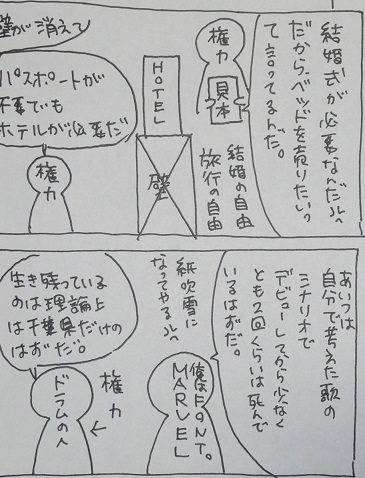 結婚式が
必要なんだル〜
だからベッドを売りたいっ
て言ってるんだ。
権力
具体
結婚の自由
旅行の自由
HOTEL
壁
壁が消えて
パスポートが
不要でも
ホテルが必要だ
権力
あいつは
自分で考えた歌の
シナリオで
デビューしてから少なく
とも2回くらいは死んで
いるはずだ。
紙吹雪に
なってやるル〜
俺はFONT。
MARVEL
権力
生き残っている
のは理論上
は千葉県だけの
はずだ。
ドラムの人